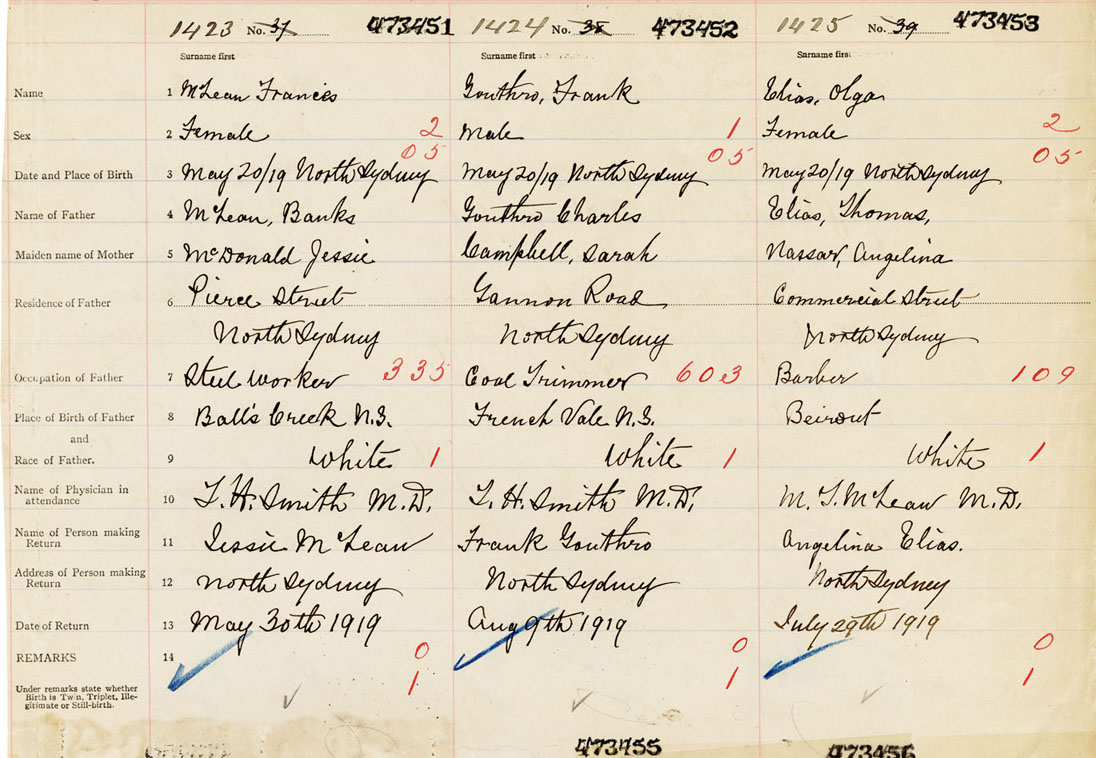 1423 No. 37 473451 1424 No. 38 473452 1425 No. 39 473453
Surname first Surname first Surname first
Name 1 McLean Francis Gouthro, Frank Elias, Olga
Sex 2 Female 2 Male 1 Female 2
05 05 05
Date and Place of Birth 3 May 20/19 North Sydney May 20/19 North Sydney May 20/19 North Sydney
Name of Father 4 McLean, Banks Gouthro Charles Elias, Thomas,
Maiden name of Mother 5 McDonald Jessie Campbell, Sarah Nassar, Angelina
Residence of Father 6 Pierce Street Gannon Road Commercial Street
North Sydney North Sydney North Sydney
Occupation of Father 7 Steel Worker 335 Coal Trimmer 603 Barber 109
Place of Birth of Father 8 Ball's Creek N.S. French Vale N.S. Beirout
and
Race of Father. 9 White 1 White 1 White 1
Name of Physician in
attendance 10 T. H. Smith M.D. T. H. Smith M.D. M. T. McLean M.D.
Name of Person making
Return 11 Jessie McLean Frank Gouthro Angelina Elias.
Address of Person making
Return 12 North Sydney North Sydney North Sydney
Date of Return 13 May 30th 1919 Aug 9th 1919 July 29th 1919
REMARKS 14 0 0 0
Under remarks state whether
Birth is Twin, Triplet, Ille-
gitimate or Still-birth.
1 1 1
473455 473456